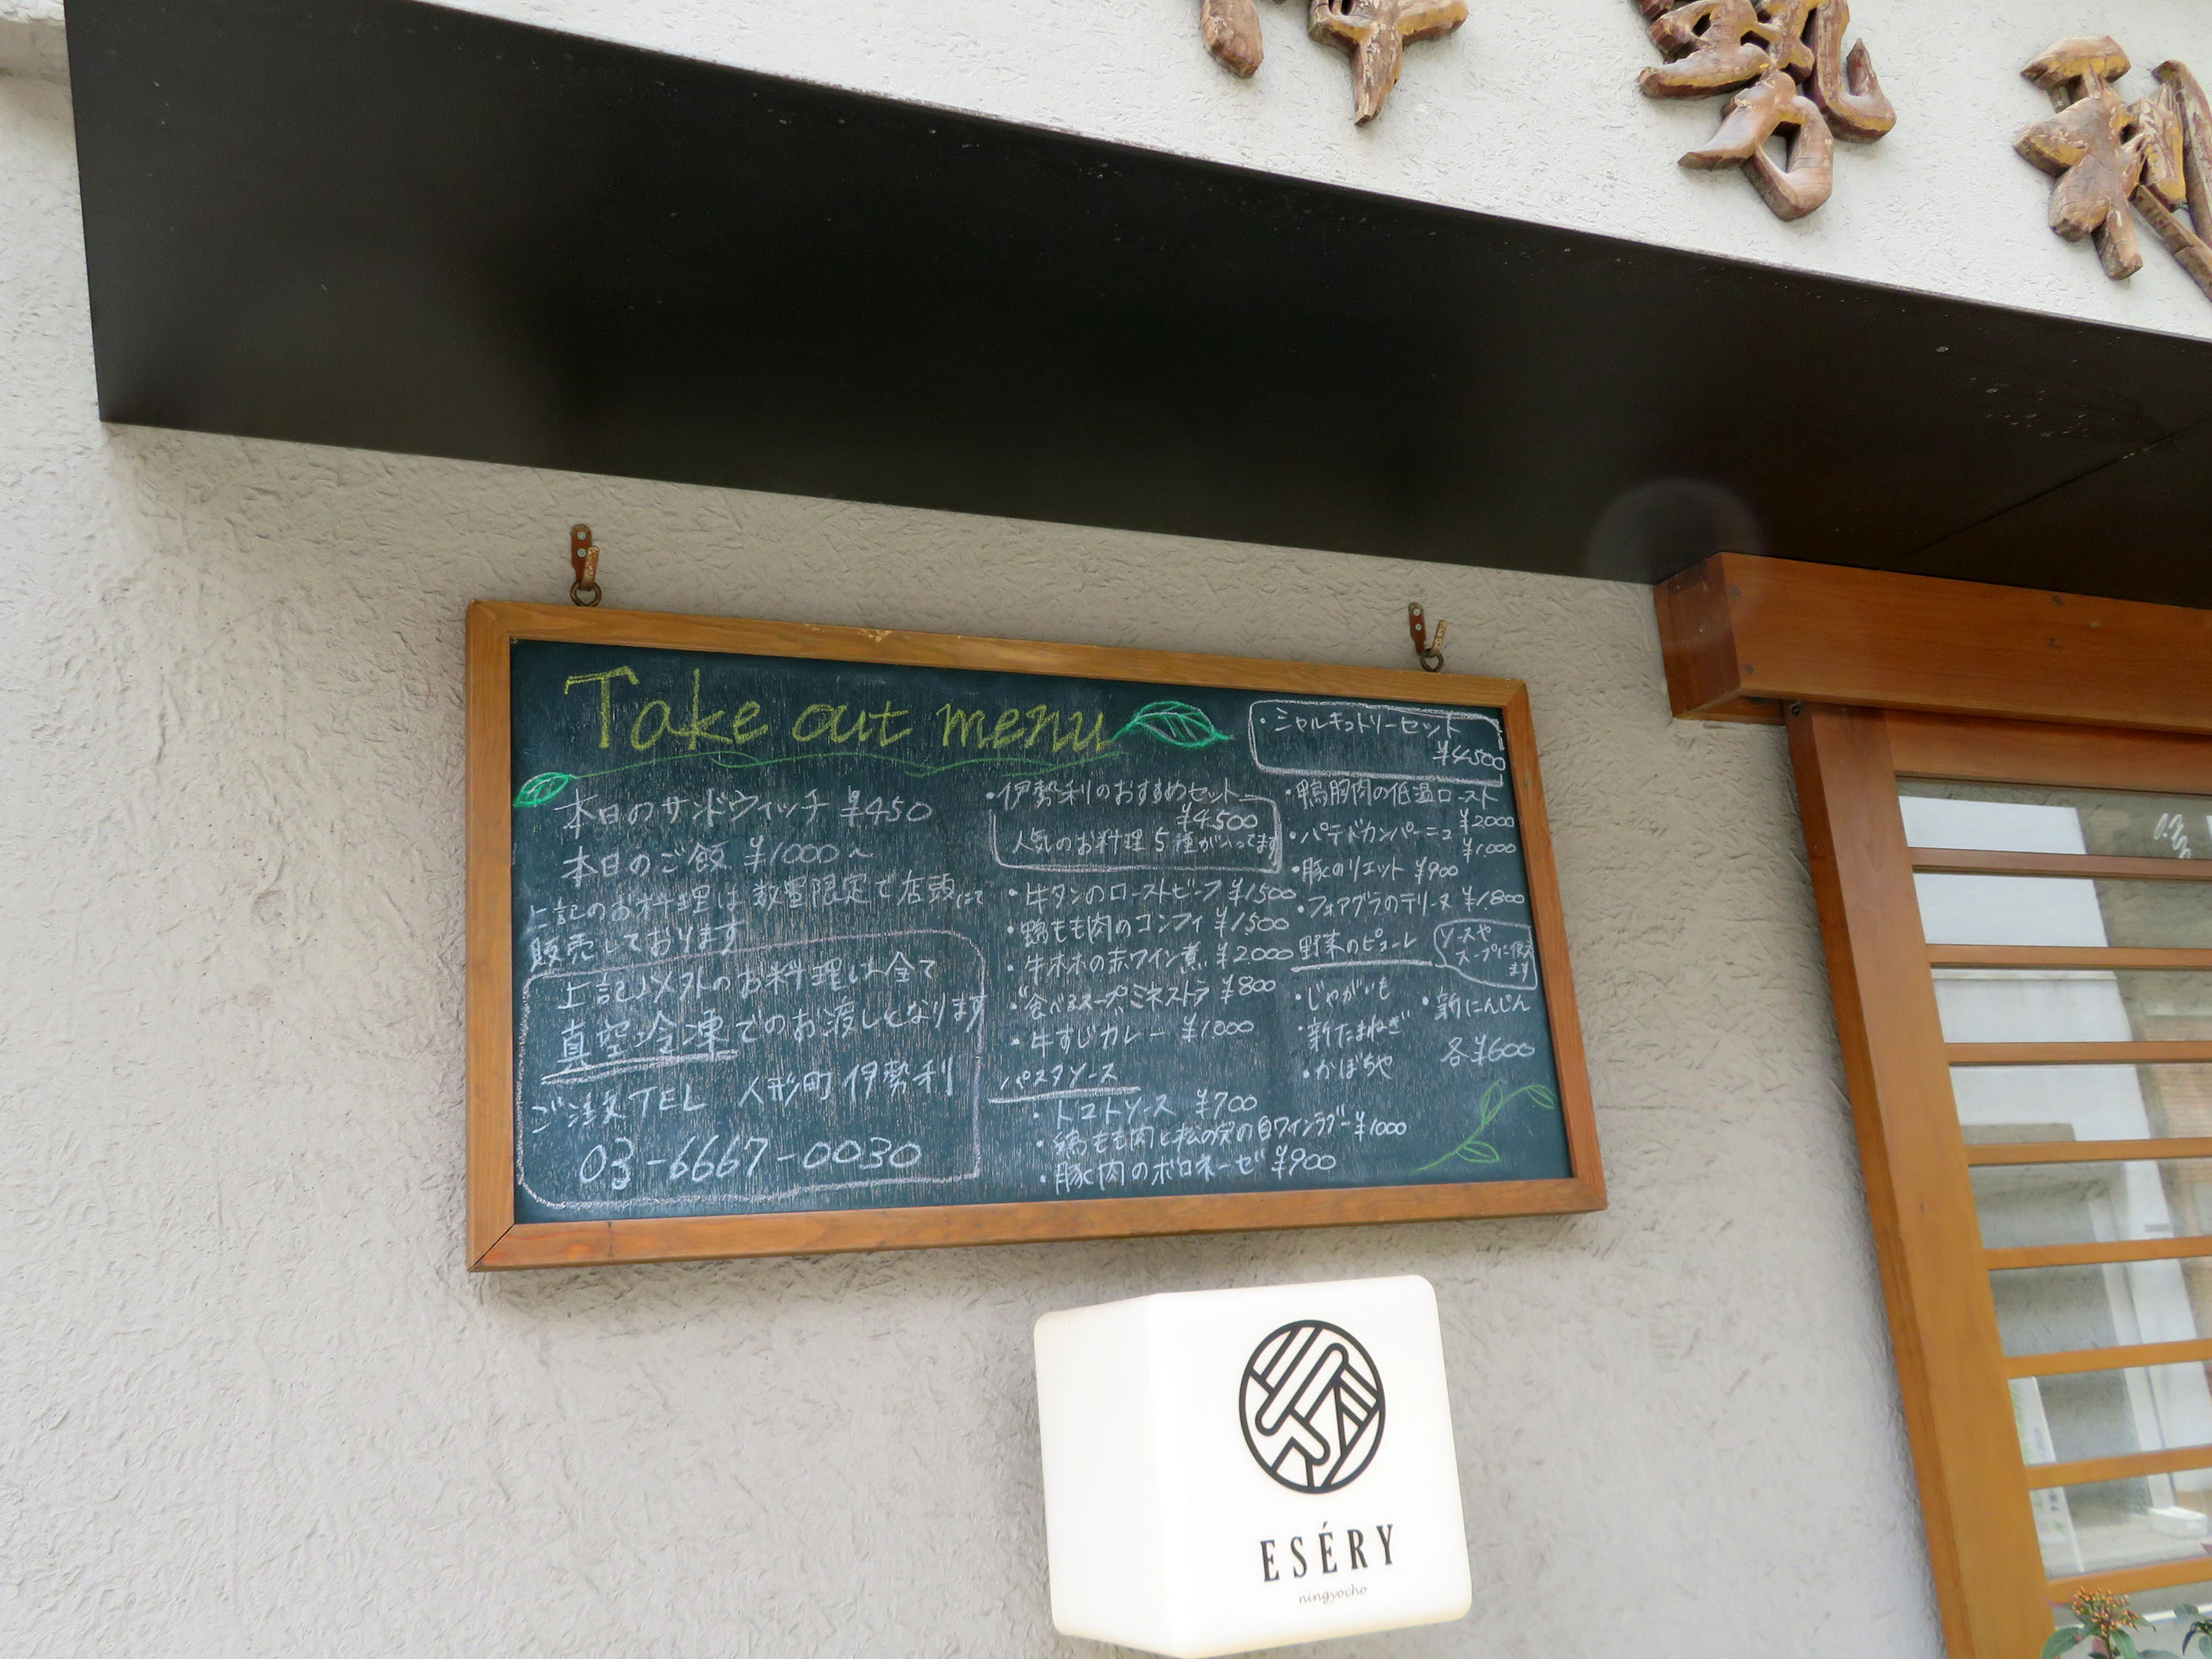 勢利
Take out menu
本日のサンドウィッチ ¥450
本日のご飯 ¥1000〜
上記のお料理は数量限定で店頭にて
販売しております
上記以外のお料理は全て
真空冷凍でのお渡しとなります
ご注文TEL 人形町 伊勢利
03-6667-0030
・伊勢利のおすすめセット
¥4500
人気のお料理5種が入ってます
・牛タンのローストビーフ ¥1500
・鴨もも肉のコンフィ ¥1500
・牛ホホの赤ワイン煮 ¥2000
・"食べるスープ"ミネストラ ¥800
・牛すじカレー ¥1000
パスタソース
・トマトソース ¥700
・鶏もも肉と松の実の白ワインラグー ¥1000
・豚肉のボロネーゼ ¥900
・シャルキュトリーセット
¥4500
・鴨胸肉の低温ロースト
¥2000
・パテドカンパーニュ ¥1000
・豚のリエット ¥900
・フォアグラのテリーヌ ¥1800
野菜のピューレ
ソースや
スープに使えます
・じゃがいも ・新にんじん
・新たまねぎ
・かぼちゃ 各¥600
ESÉRY
ningyocho